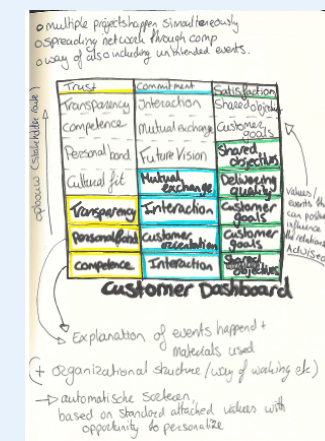 o multiple projects happen simultaneously
o spreading network through comp
o way of also including unintended events.
Trust Commitment Satisfaction
Transparency Interaction Shared objectives
competence Mutual exchange Customer goals
Personal bond Future Vision Shared objectives
Cultural fit Mutual exchange Delivering quality
Transparency Interaction Customer goals
Personal bond customer orientation Customer goals
competence Interaction Shared objectives
Customer Dashboard
(stakeholder
values/
events th
can
influence
relations
Explanation of events happend +
materials used
(+ organizational structure / way of working etc)
→ automatische
based on standard attached values with
opportunity to personalize